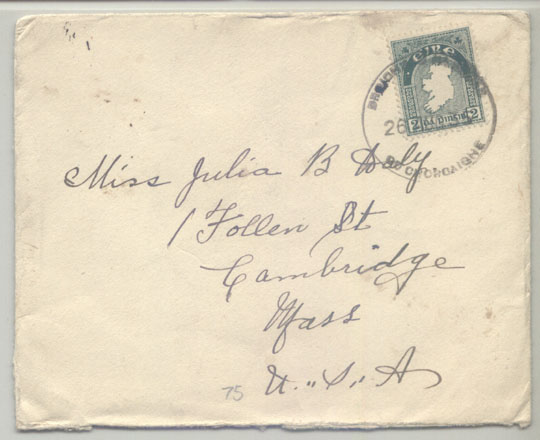 éire
2 dá pinġin 2
26
CO CHORCAIGHE
Miss Julia B Daly
1 Follen St
Cambridge
Mass
U.S.A
75